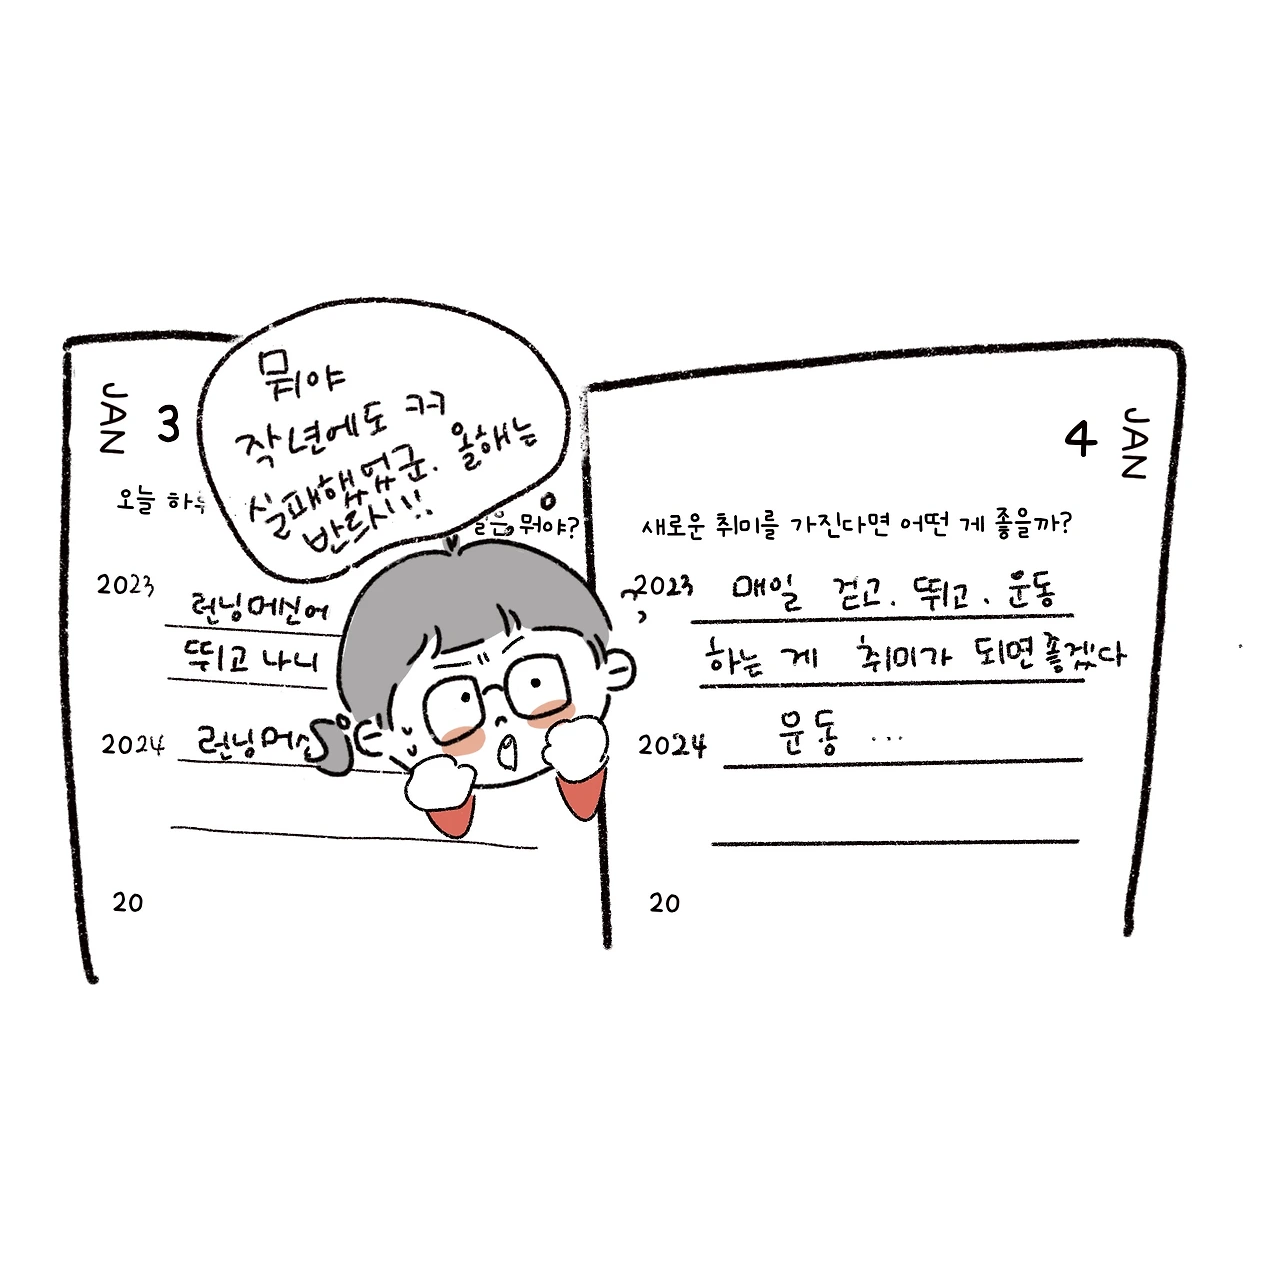 뭐야
작년에도 ㅋㅋ
실패했었군. 올해는
반드시!!
JAN 3
오늘 하루 뭐야?
2023 런닝머신에
뛰고 나니
2024 런닝머신
20
4 JAN
새로운 취미를 가진다면 어떤 게 좋을까?
2023 매일 걷고. 뛰고. 운동
하는 게 취미가 되면 좋겠다
2024 운동 ...
20